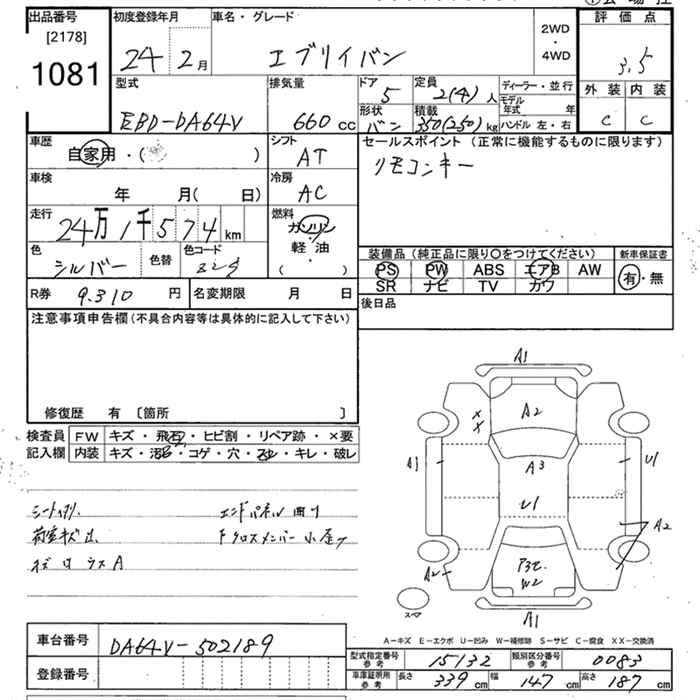 出品番号
[2178]
1081
初度登録年月
24 2月
車名・グレード
エブリイバン
2WD
・
4WD
評価点
3.5
外装 内装
C C
型式
EBD-DA64V
排気量
660 cc
ドア
5
定員
2(4)人
形状
バン
積載
350(250)kg
ディーラー・並行
モデル年式 年
ハンドル 左・右
車歴
自家用・( )
シフト
AT
車検
年 月(日)
冷房
AC
走行
24万1千574km
燃料
ガソリン
軽油
・
( )
色
シルバー
色替
色コード
R券 9.310 円
名変期限 月 日
セールスポイント(正常に機能するものに限ります)
リモコンキー
装備品(純正品に限り〇をつけてください)
PS PW ABS エアB AW
SR ナビ TV カワ
新車保証書
有・無
後日品
注意事項申告欄(不具合内容等は具体的に記入して下さい)
修復歴 有 〔箇所 〕
検査員
記入欄
FW キズ・飛石・ヒビ割・リペア跡・×要
内装 キズ・汚れ・コゲ・穴・スレ・キレ・破レ
荷室キズ
エンドパネル曲り
Fクロスメンバー
A1
A2
XX
A3
A1
U1
U1
A2
A2
W2
A1
スマ
A-キズ E-エクボ U-凹み W-補修跡 S-サビ C-腐食 XX-交換済
車台番号 DA64V-502189
登録番号
型式指定番号
参考
15132
類別区分番号
参考
0083
車庫証明用
参考
長さ 339cm 幅 147cm 高さ 187cm